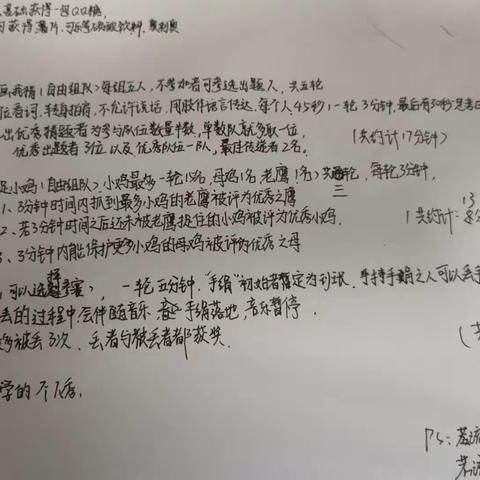 基础获得一包QQ糖,
可获得薯片、可乐等碳酸饮料、奥利奥
画我猜(自由组队)每组五人,不参加者可考选出题人,共五轮
位看词,转身拍肩,不允许说话,用肢体语言传达,每个人45秒,一轮3分钟,最后有30秒思考
出优秀猜题者为参与队伍数量半数,单数队就多取一位,
优秀出题者3位以及优秀队伍一队,最佳传递者2名。
(共约计17分钟)
捉小鸡(自由组队)小鸡最多一轮15名,母鸡1名 老鹰1名 共三轮,每轮3分钟,
1、3分钟时间内抓到最多小鸡的老鹰被评为优秀之鹰
2、若3分钟时间之后还未被老鹰捉住的小鸡被评为优秀小鸡,
(共约计:
13
3、3分钟内能保护更多小鸡的母鸡被评为优秀之母
可以选择,一轮五分钟,"手绢"初始者暂定为刘班,手持手绢之人可以丢手
丢的过程中会伴随音乐,手绢落地,音乐暂停.
多被丢3次,丢者与被丢者都获奖.
学的个人秀,
(
Ps: